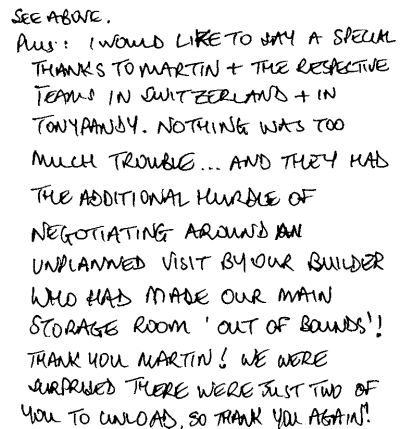 SEE ABOVE.
PLUS: I WOULD LIKE TO SAY A SPECIAL
THANKS TO MARTIN + THE RESPECTIVE
TEAMS IN SWITZERLAND + IN
TONYPANDY. NOTHING WAS TOO
MUCH TROUBLE... AND THEY HAD
THE ADDITIONAL HURDLE OF
NEGOTIATING AROUND AN
UNPLANNED VISIT BY OUR BUILDER
WHO HAD MADE OUR MAIN
STORAGE ROOM 'OUT OF BOUNDS'!
THANK YOU MARTIN! WE WERE
SURPRISED THERE WERE JUST TWO OF
YOU TO UNLOAD, SO THANK YOU AGAIN!